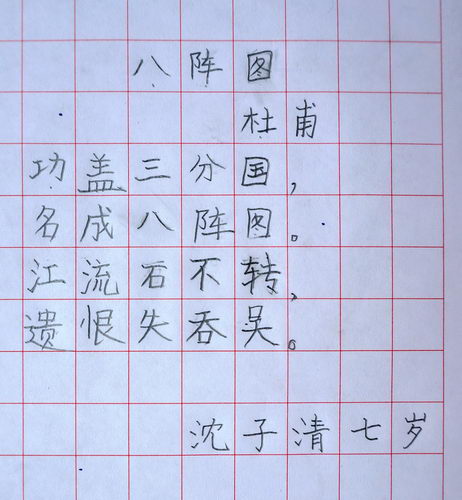 八阵图
杜甫
功盖三分国，
名成八阵图。
江流石不转，
遗恨失吞吴。
沈子清七岁